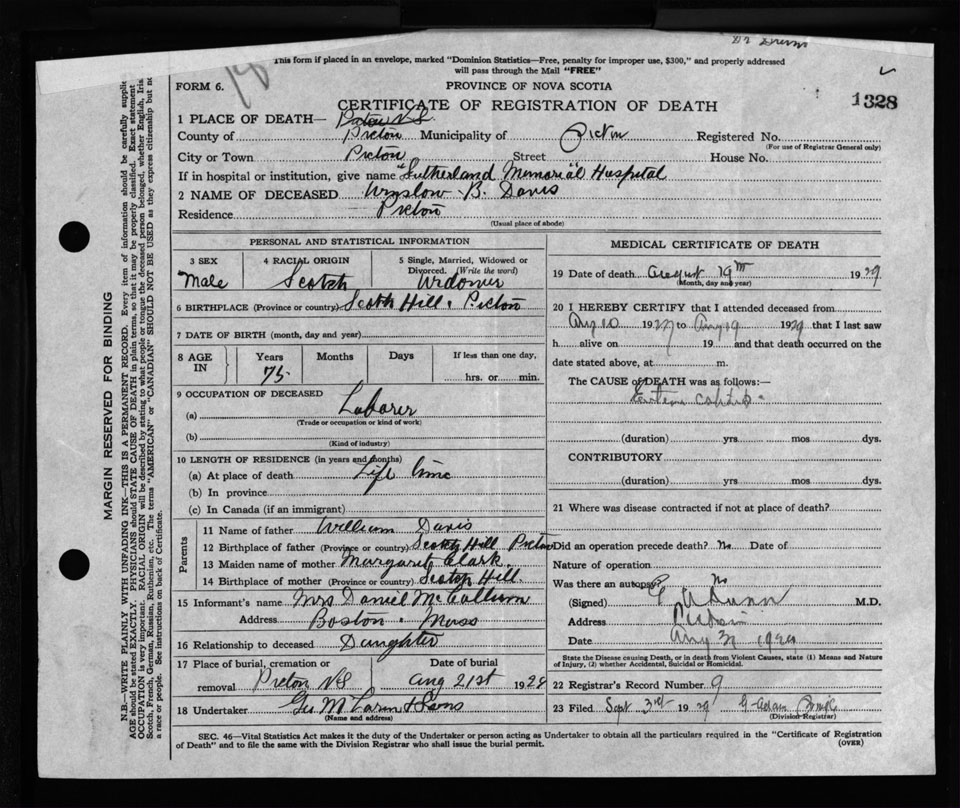 This form if placed in an envelope, marked "Dominion Statistics—Free, penalty for improper use, $300," and properly addressed
will pass through the Mail "FREE"
FORM 6.
PROVINCE OF NOVA SCOTIA
CERTIFICATE OF REGISTRATION OF DEATH
1328
1 PLACE OF DEATH— Pictou N.S.
County of Pictou Municipality of Pictou Registered No.
(For use of Registrar General only)
City or Town Pictou Street House No.
If in hospital or institution, give name "Sutherland Memorial" Hospital
2 NAME OF DECEASED Winslow B. Davis
Residence Pictou
(Usual place of abode)
PERSONAL AND STATISTICAL INFORMATION
3 SEX 4 RACIAL ORIGIN 5 Single, Married, Widowed or
Divorced. (Write the word)
Male Scotch Widower
6 BIRTHPLACE (Province or country) Scotch Hill. Pictou
7 DATE OF BIRTH (month, day and year)
8 AGE IN Years Months Days If less than one day,
75. hrs. or min.
9 OCCUPATION OF DECEASED
(a) Laborer
(Trade or occupation or kind of work)
(b)
(Kind of industry)
10 LENGTH OF RESIDENCE (in years and months)
(a) At place of death Life time
(b) In province
(c) In Canada (if an immigrant)
Parents
11 Name of father William Davis
12 Birthplace of father (Province or country) Scotch Hill Pictou
13 Maiden name of mother Margaret Clark.
14 Birthplace of mother (Province or country) Scotch Hill.
15 Informant's name Mrs Daniel McCallum
Address Boston. Mass
16 Relationship to deceased Daughter
17 Place of burial, cremation or Date of burial
removal Pictou N.S Aug 21st 1928
18 Undertaker & Sons
(Name and address)
MEDICAL CERTIFICATE OF DEATH
19 Date of death August 19th 1929
(Month, day and year)
20 I HEREBY CERTIFY that I attended deceased from
Aug 10 1927 to Aug 19 1929 that I last saw
h alive on 19 and that death occurred on the
date stated above, at m.
The CAUSE of DEATH was as follows:—
(duration) yrs. mos dys.
CONTRIBUTORY
(duration) yrs. mos dys.
21 Where was disease contracted if not at place of death?
Did an operation precede death? No Date of
Nature of operation
Was there an autopsy? No
(Signed) Dunn M.D.
Address Pictou
Date Aug 1929
State the Disease causing Death, or in death from Violent Causes, state (1) Means and Nature
of Injury, (2) whether Accidental, Suicidal or Homicidal.
22 Registrar's Record Number 9
23 Filed Sept 3rd 1929 G. Adam
(Division Registrar)
SEC. 46—Vital Statistics Act makes it the duty of the Undertaker or person acting as Undertaker to obtain all the particulars required in the "Certificate of Registration
of Death" and to file the same with the Division Registrar who shall issue the burial permit. (OVER)
MARGIN RESERVED FOR BINDING
N.B.—WRITE PLAINLY WITH UNFADING INK—THIS IS A PERMANENT RECORD. Every item of information should be carefully supplie
AGE should be stated EXACTLY. PHYSICIANS should STATE CAUSE OF DEATH in plain terms, so that it may be properly classified. Exact statement
OCCUPATION is very important. RACIAL ORIGIN will be described by stating to what people or tongue the deceased person belonged, whether English, Iris
Scotch, French, German, Russian, Ruthenian, etc. The terms "AMERICAN" or "CANADIAN" SHOULD NOT BE USED as they express citizenship but no
a race or people. See instructions on back of Certificate.